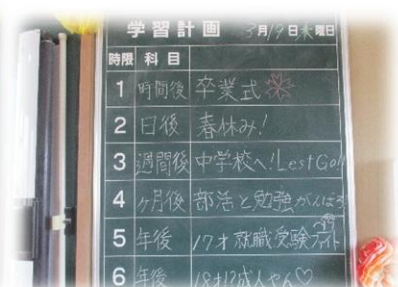 学習計画 3月19日木曜日
時限 科目
1 時間後 卒業式
2 日後 春休み!
3 週間後 中学校へ!Lest Go!!
4 ヶ月後 部活と勉強がんばる
5 年後 17才 就職受験ファイト
6 年後 18才!?成人やん♡